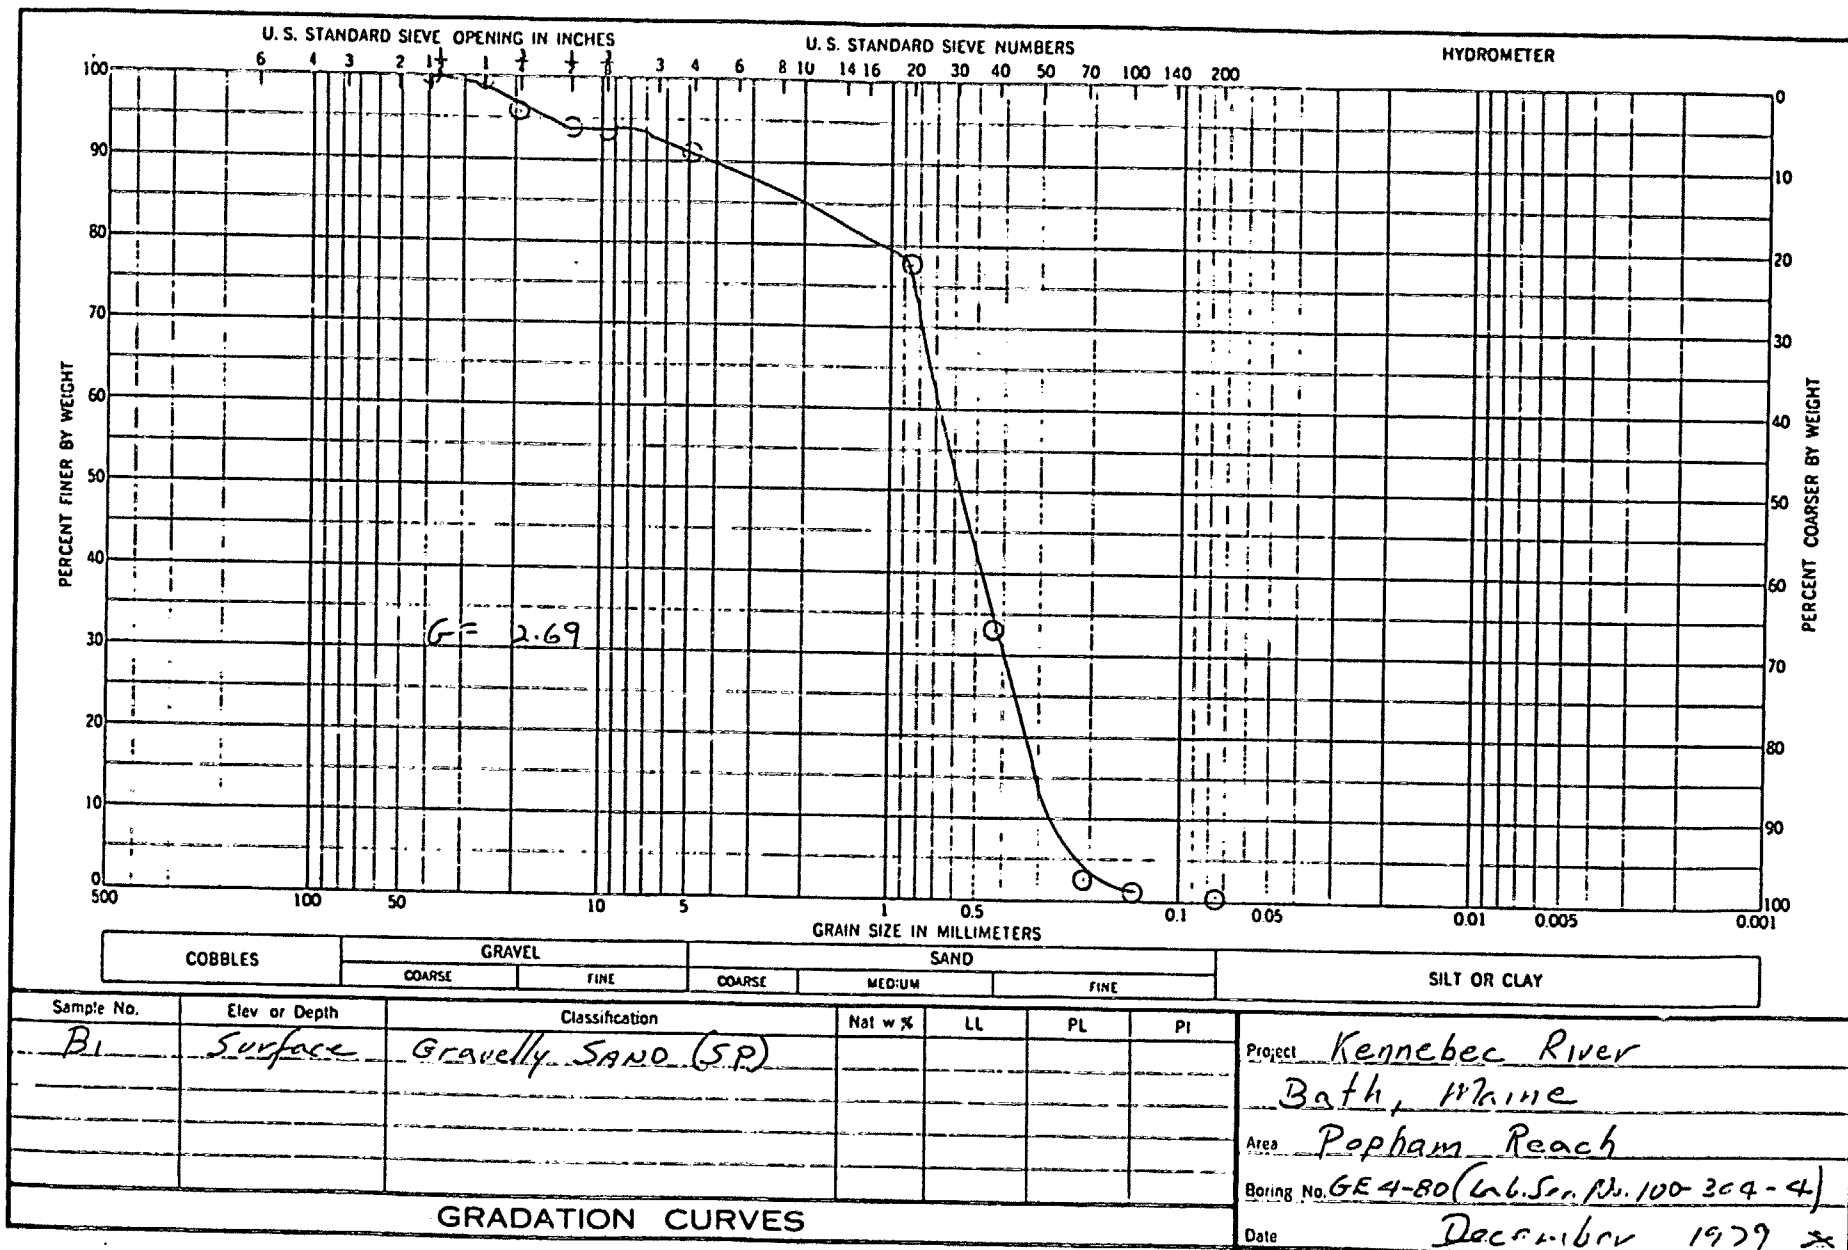 U. S. STANDARD SIEVE OPENING IN INCHES U. S. STANDARD SIEVE NUMBERS HYDROMETER
6 4 3 2 1½ 1 ¾ ½ ⅜ 3 4 6 8 10 14 16 20 30 40 50 70 100 140 200
PERCENT FINER BY WEIGHT
100
90
80
70
60
50
40
30
20
10
0
G = 2.69
0
10
20
30
40
50
60
70
80
90
100
PERCENT COARSER BY WEIGHT
500 100 50 10 5 1 0.5 0.1 0.05 0.01 0.005 0.001
GRAIN SIZE IN MILLIMETERS
COBBLES GRAVEL SAND SILT OR CLAY
COARSE FINE COARSE MEDIUM FINE
Sample No. Elev or Depth Classification Nat w % LL PL PI
B1 Surface Gravelly SAND (SP)
Project Kennebec River
Bath, Maine
Area Popham Reach
Boring No. GE 4-80 (Lab. Ser. No. 100-304-4)
Date December 1979
GRADATION CURVES